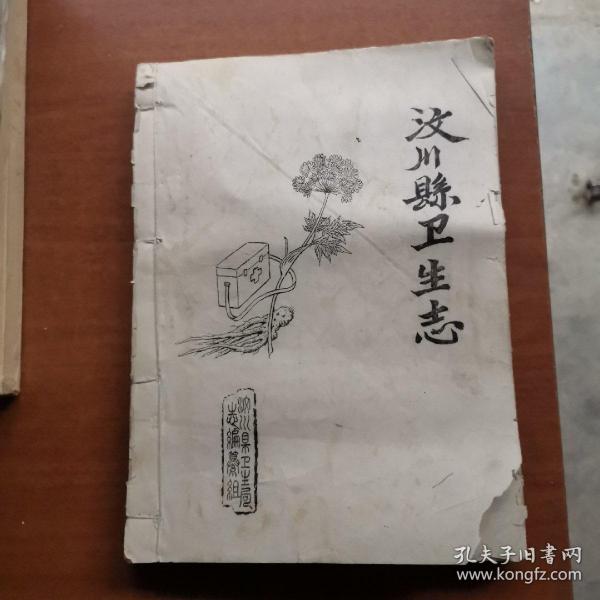 汶川縣卫生志
汶川县卫生局
志编纂组
孔夫子旧書网
www.kongfz.com